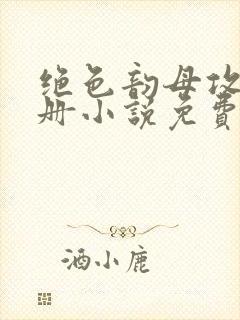 绝色韵母攻
册小说免费
酒小鹿